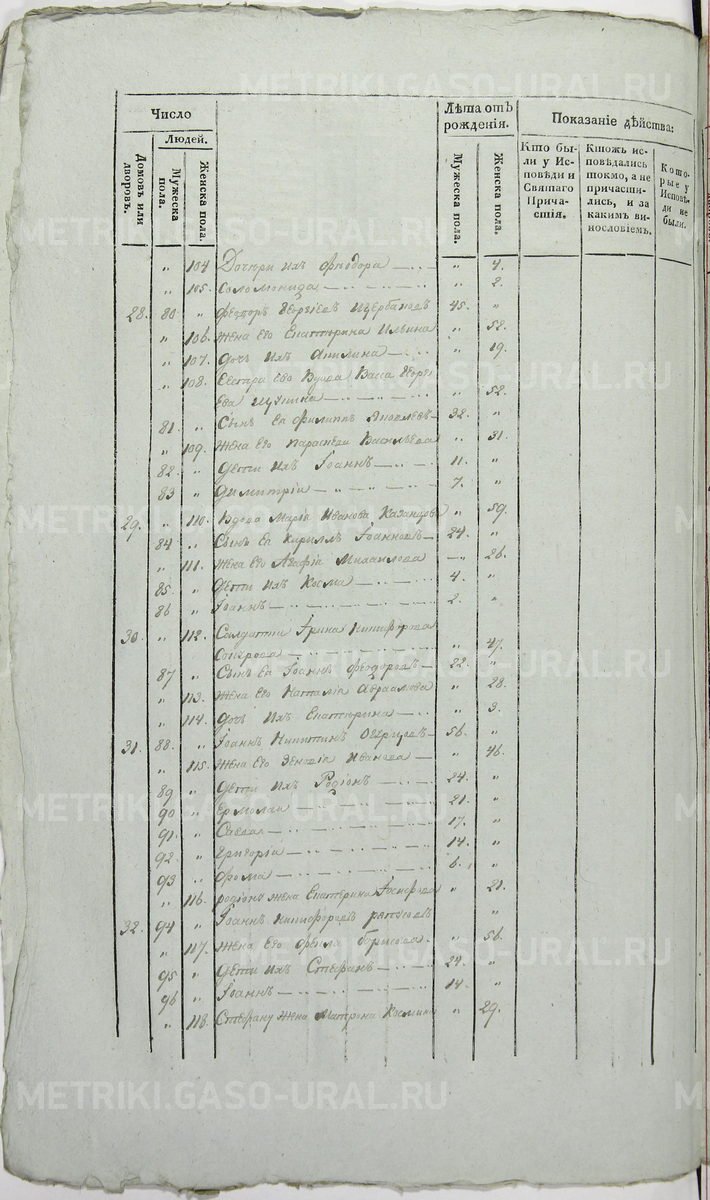 METRIKI.GASO-URAL.RU
Число
Людей.
Домовъ или дворовъ.
Мужеска пола.
Женска пола.
Лѣта отъ рожденія.
Мужеска пола.
Женска пола.
Показаніе дѣйства:
Кто бы-
ли у Ис-
повѣди и
Святаго
Прича-
стія.
Ктожъ ис-
повѣдались
токмо, а не
причасти-
лись, и за
какимъ ви-
нословіемъ.
Кото-
рые у
Исповѣ-
ди не
были.
„ 104 Дочери ихъ Ѳеодора „ 4.
„ 105. Соломонида „ 2.
28. 80 „ Ѳеодоръ Георгіевъ Щербаковъ 45. „
„ 106. жена Его Екатерина Ильина „ 52.
„ 107. дочь Ихъ Акилина „ 19.
„ 108. Сестра Его Вдова Васса Георгі
ева „ 52.
81. „ Сынъ Ея Филиппъ Яковлевъ 32. „
„ 109. жена Его Параскева Васильева „ 31.
82. „ Дети Ихъ Іоаннъ 11. „
83 „ Димитрій 7. „
29. „ 110. Вдова Марія Иванова Казанцова „ 59.
84 „ Сынъ Ея Кириллъ Іоанновъ 24. „
„ 111. жена Его Агафія Михаилова „ 26.
85. „ Дети Ихъ Косма 4. „
86 „ Іоаннъ 2. „
30. „ 112. Солдатка Ирина Никифорова
„ 47.
87 „ Сынъ Ея Іоаннъ Ѳеодоровъ 22. „
„ 113. жена Его Наталія Авраамова „ 28.
„ 114. дочь Ихъ Екатерина „ 3.
31. 88. „ Іоаннъ Никитинъ 56. „
„ 115. жена Его Зеновія Иванова „ 46.
89 „ Дети Ихъ Родіонъ 24. „
90 „ Ермолай 21. „
91. „ Савва 17. „
92. „ Григорій 14. „
93 „ Ѳома 6. „
„ 116. родіону жена Екатерина Іосифова „ 21.
32. 94 „ Іоаннъ Никифоровъ „
„ 117. жена Его Ѳекла Борисова „ 56.
95 „ Дети Ихъ Стефанъ 24. „
96 „ Іоаннъ 14. „
„ 118. Стефану жена Матрона Космина „ 29.